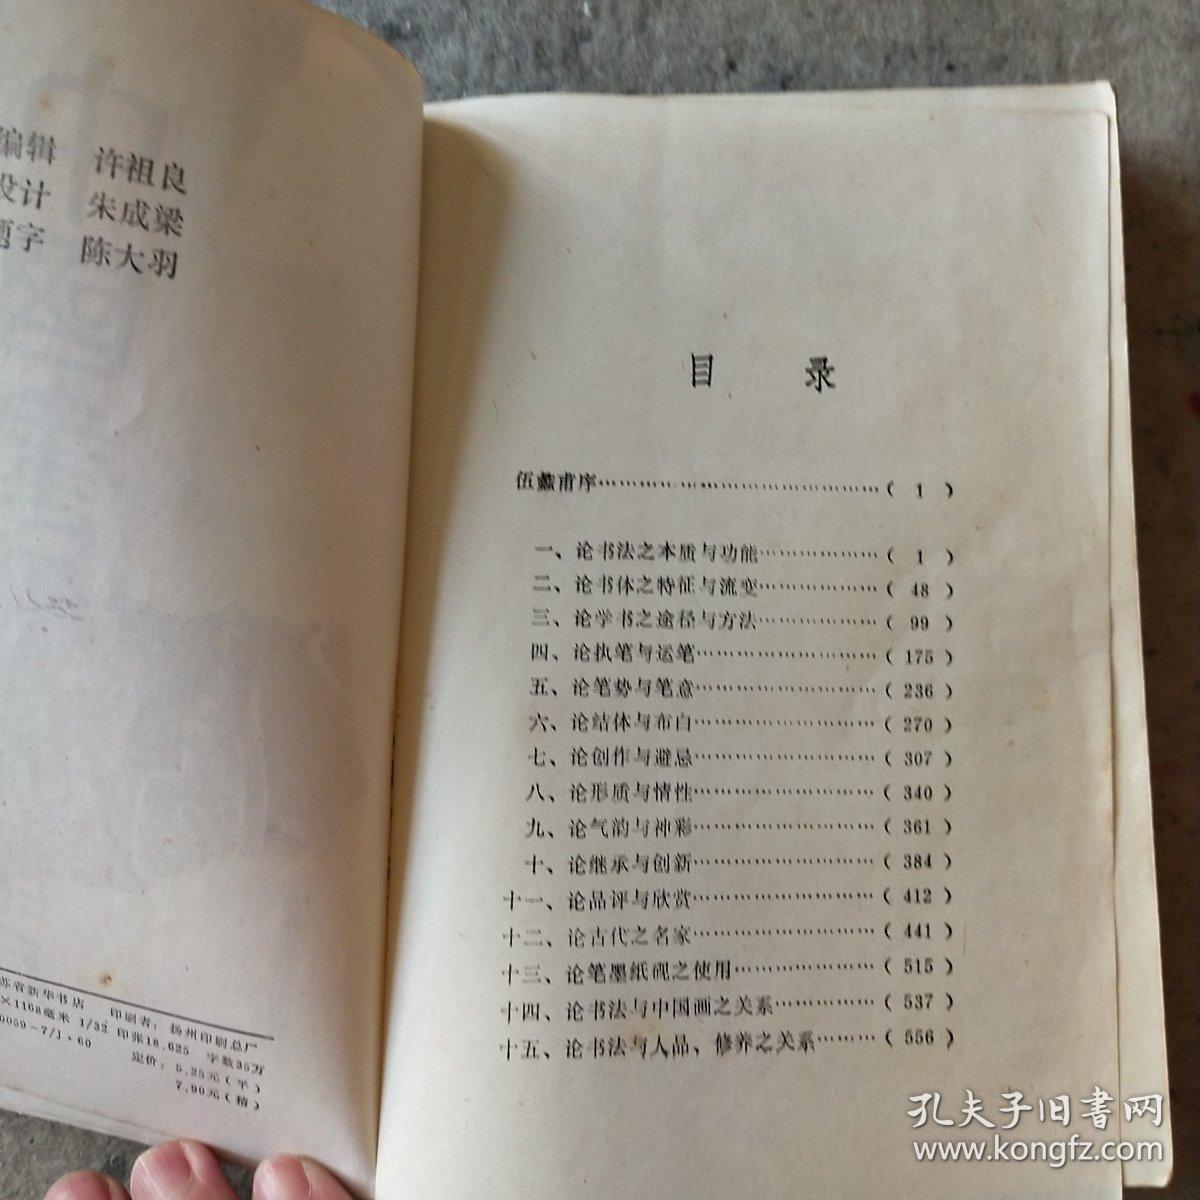 编辑 许祖良
设计 朱成梁
题字 陈大羽
苏省新华书店 印刷者：扬州印刷总厂
×1168毫米 1/32 印张18.625 字数35万
0059-7/J·60
定价：5.25元(平)
7.90元(精)
目 录
伍蠡甫序………………………………( 1 )
一、论书法之本质与功能………………( 1 )
二、论书体之特征与流变………………( 48 )
三、论学书之途径与方法………………( 99 )
四、论执笔与运笔………………………( 175 )
五、论笔势与笔意………………………( 236 )
六、论结体与布白………………………( 270 )
七、论创作与避忌………………………( 307 )
八、论形质与情性………………………( 340 )
九、论气韵与神彩………………………( 361 )
十、论继承与创新………………………( 384 )
十一、论品评与欣赏……………………( 412 )
十二、论古代之名家……………………( 441 )
十三、论笔墨纸砚之使用………………( 515 )
十四、论书法与中国画之关系…………( 537 )
十五、论书法与人品、修养之关系……( 556 )
孔夫子旧书网
www.kongfz.com